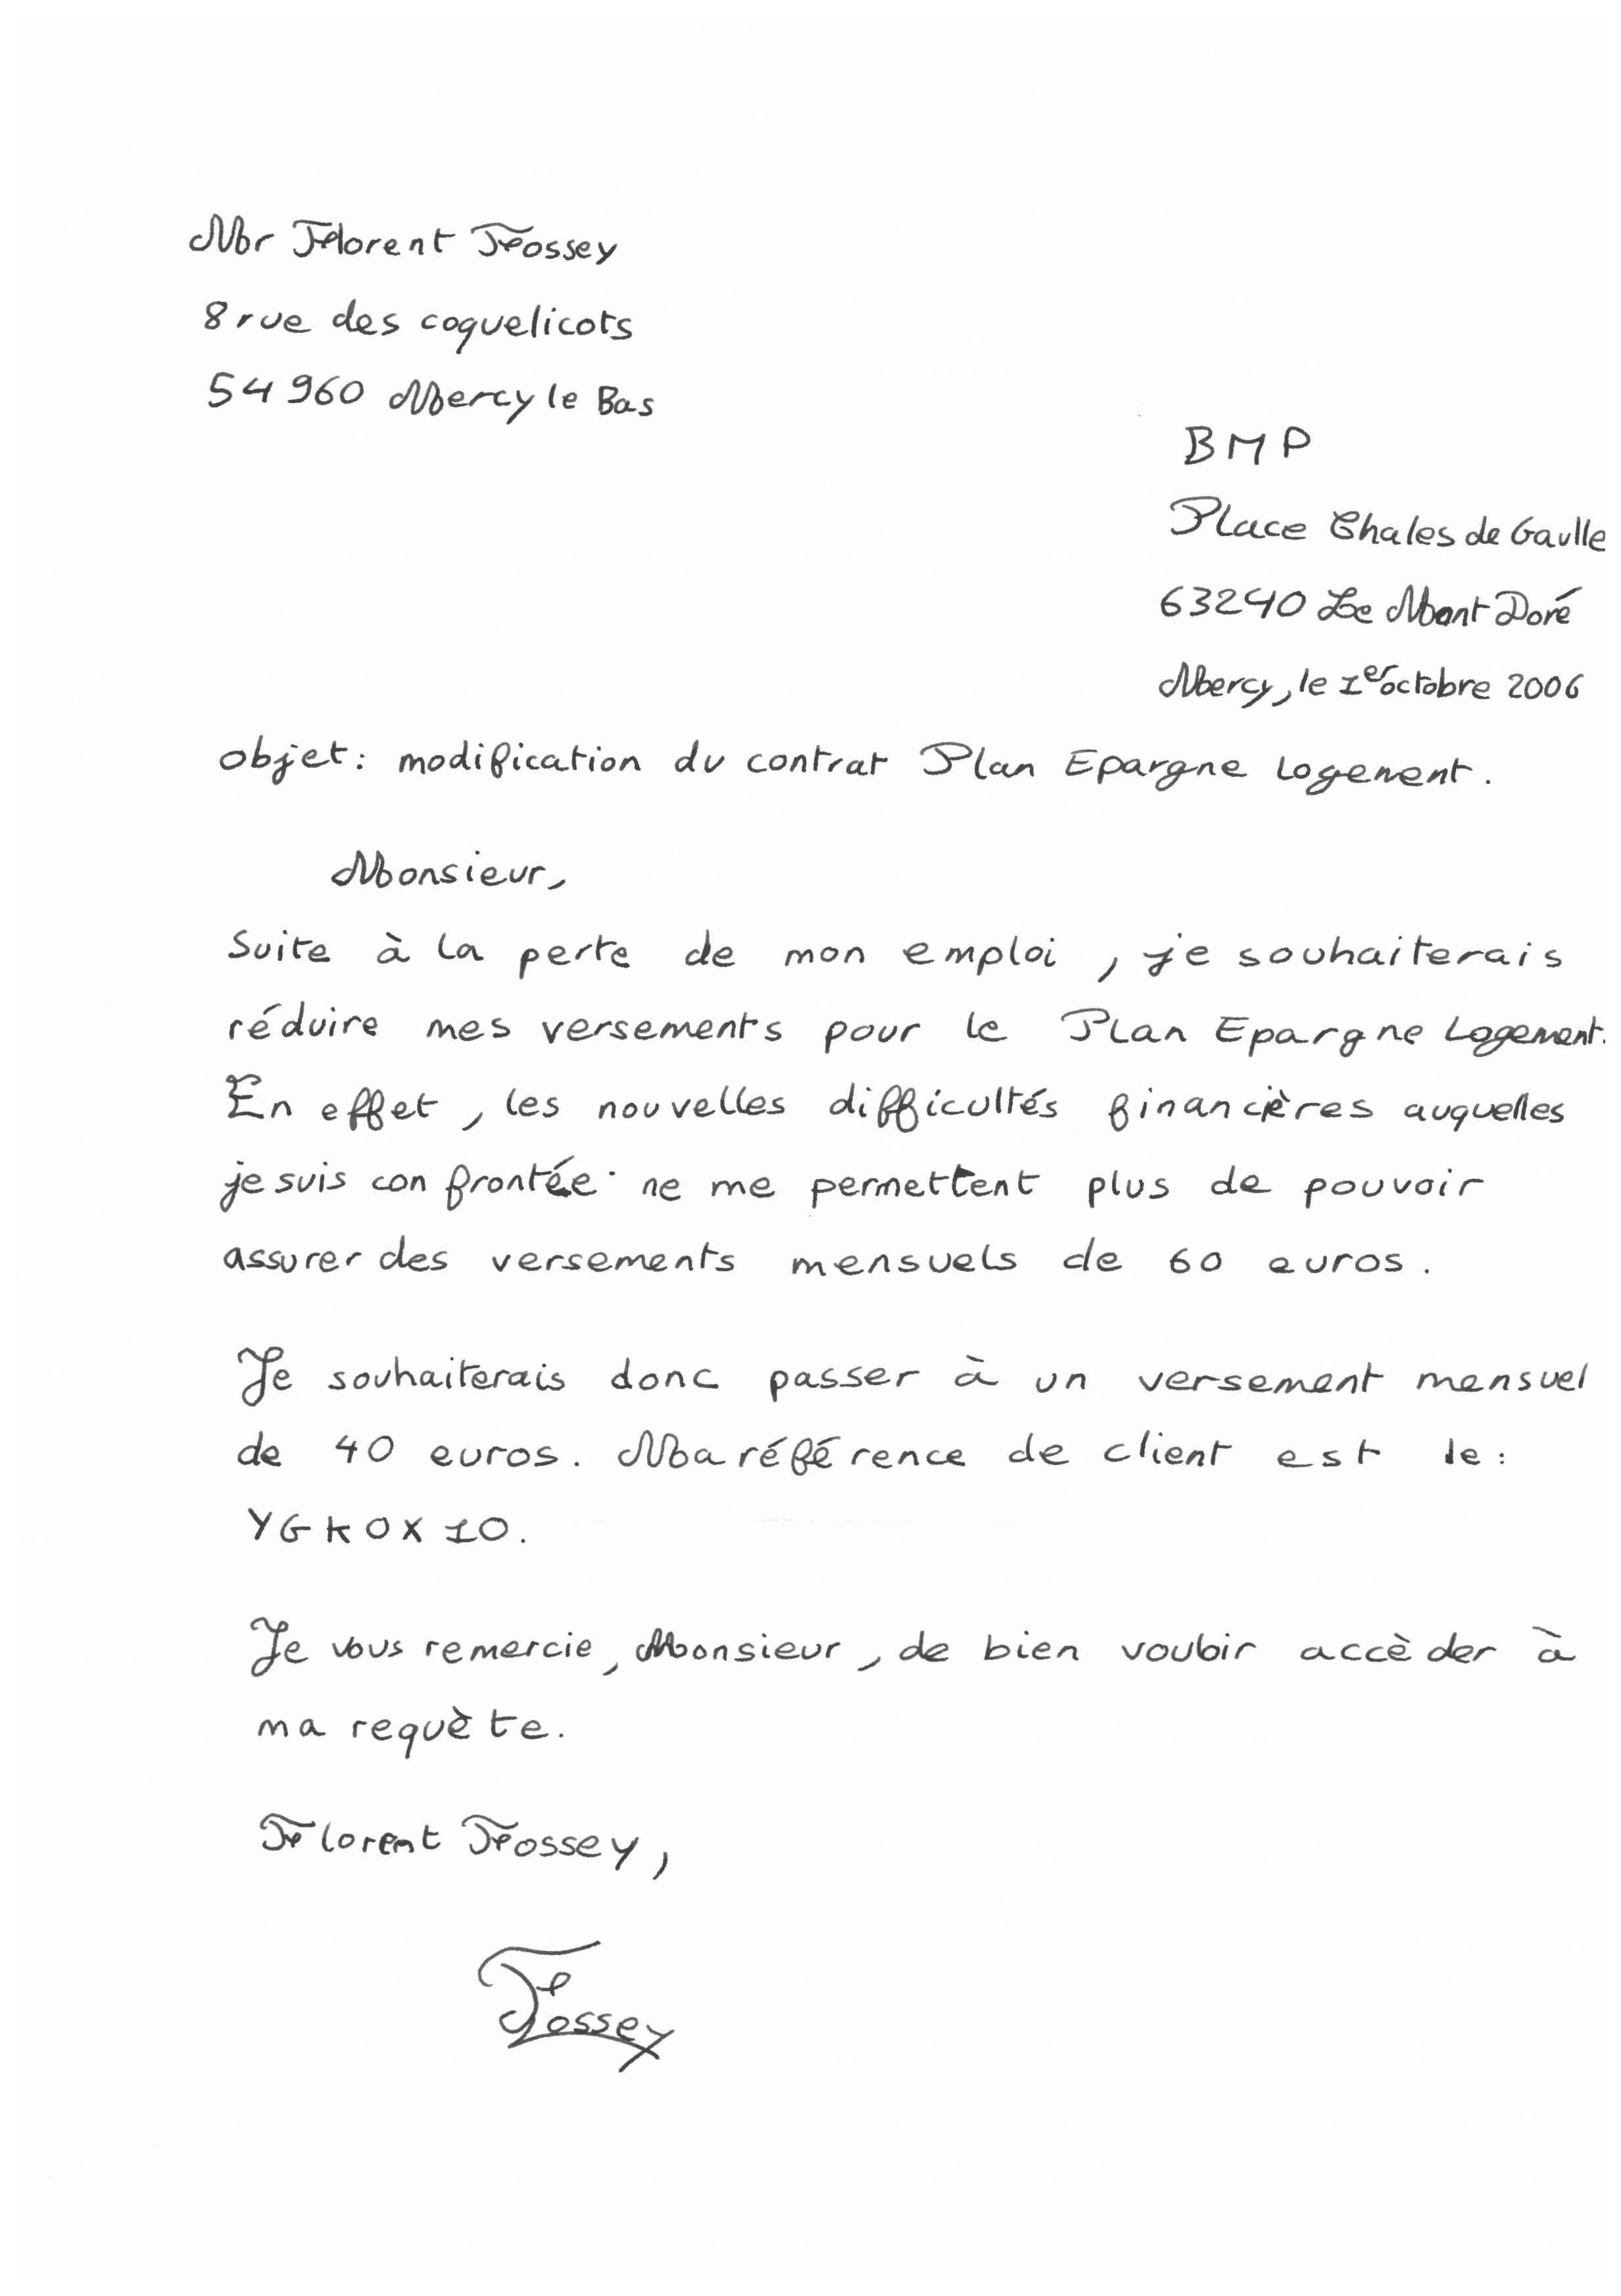 Mr Florent Fossey
8 rue des coquelicots
54960 Mercy le Bas
BMP
Place Chales de Gaulle
63240 Le Mont Doré
Mercy, le 1er octobre 2006
objet : modification du contrat Plan Epargne Logement.
Monsieur,
Suite à la perte de mon emploi, je souhaiterais
réduire mes versements pour le Plan Epargne Logement.
En effet, les nouvelles difficultés financières auquelles
je suis confrontée ne me permettent plus de pouvoir
assurer des versements mensuels de 60 euros.
Je souhaiterais donc passer à un versement mensuel
de 40 euros. Ma référence de client est le :
YGKOX10.
Je vous remercie, Monsieur, de bien vouloir accèder à
ma requète.
Florent Fossey,
Fossey